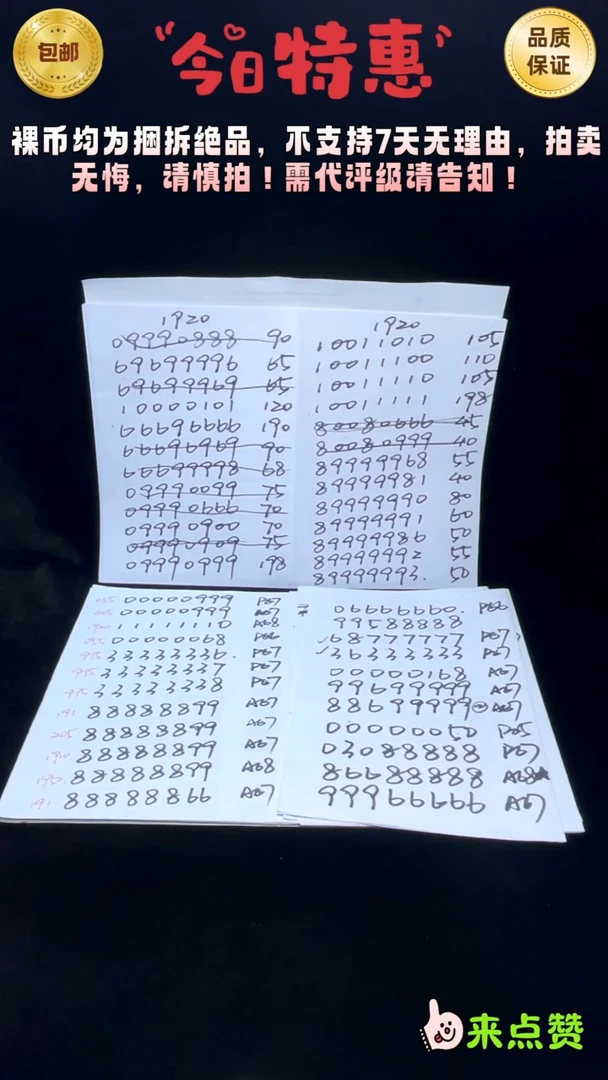 包邮
今日特惠
品质
保证
裸币均为捆拆绝品，不支持7天无理由，拍卖
无悔，请慎拍！需代评级请告知！
1920
09990888 90
69699996 65
69699969 65
10000101 120
66696666 190
66696969 90
66699998 68
09990099 75
09990666 70
09990900 70
09990909 75
09990999 198
1920
10011010 105
10011100 110
10011110 105
10011111 198
80080666 45
80080999 40
89999968 55
89999981 40
89999990 80
89999991 60
89999986 50
89999992 55
89999993. 50
00000999 P67
205 00000999 A67
1920 11111110 A68
00000068 P66
33333336. P67
33333337 P67
33333338 P67
191 88888899 A67
205 88888899 A67
1910 88888899 A67
1920. 88888899 A68
191 88888866 A67
06666660. P66
99588888
✓68777777 P67
✓36333333 P67
00000168 A67
99699999 A67
88699999 A67
00000050 P65
03088888 P67
86688888 A68
99966666 A67
来点赞